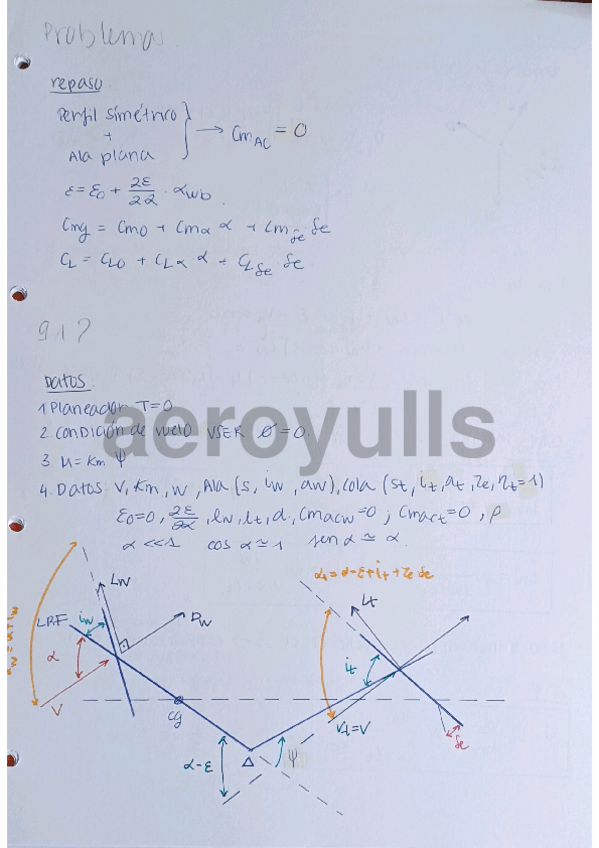 Problemas
repaso
Perfil simétrico
+
Ala plana
→ CmAC = 0
ε = ε0 + 2ε/2α · αwb
Cmg = Cm0 + Cmα α + Cmδe δe
CL = CL0 + CLα α + CLδe δe
9.1?
DATOS.
1 Planeador T=0
2. condición de vuelo VSER Ø=0.
3 M = Km ψ
4. Datos V, Km, W, Ala (s, iw, aw), cola (st, it, at, τe, ηt=1)
ε0=0, 2ε/2α, lw, lt, d, Cmacw=0; Cmact=0, ρ
α <<1 cos α ≃ 1 sen α ≃ α.
αt = α-ε+it+τe δe
Lw
Lt
LRF
iw
Dw
α
it
V
cg
Vt=V
δe
Δ
ψ
α-ε
aeroyulls